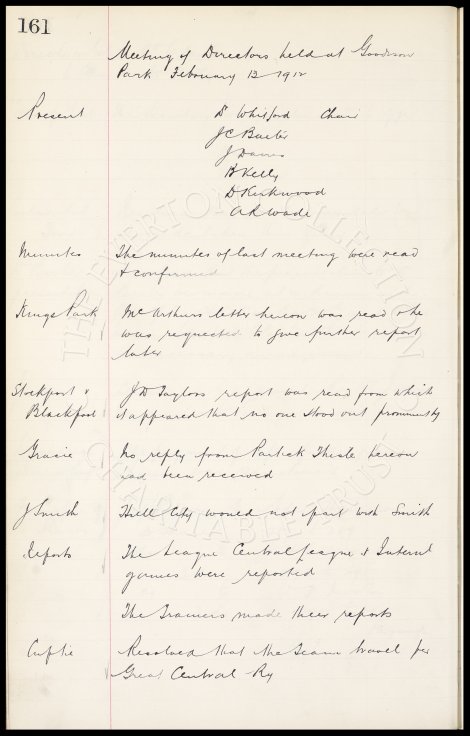 161
Meeting of Directors held at Goodison
Park February 12 1912
Present Dr Whitford Chair
J C Baxter
J Davies
B Kelly
D Kirkwood
A R Wade
Minutes The minutes of last meeting were read
& confirmed
Kings Park McArthurs letter hereon was read & he
was requested to give further report
later
Stockport v J D Taylors report was read from which
Blackpool it appeared that no one stood out prominently
Gracie No reply from Partick Thistle hereon
had been received
J Smith Hull City would not part with Smith
Reports The League Central League & Internl
games were reported
The Trainers made their reports
Cuptie Resolved that the Team travel per
Great Central Ry
THE EVERTON COLLECTION
CHARITABLE TRUST